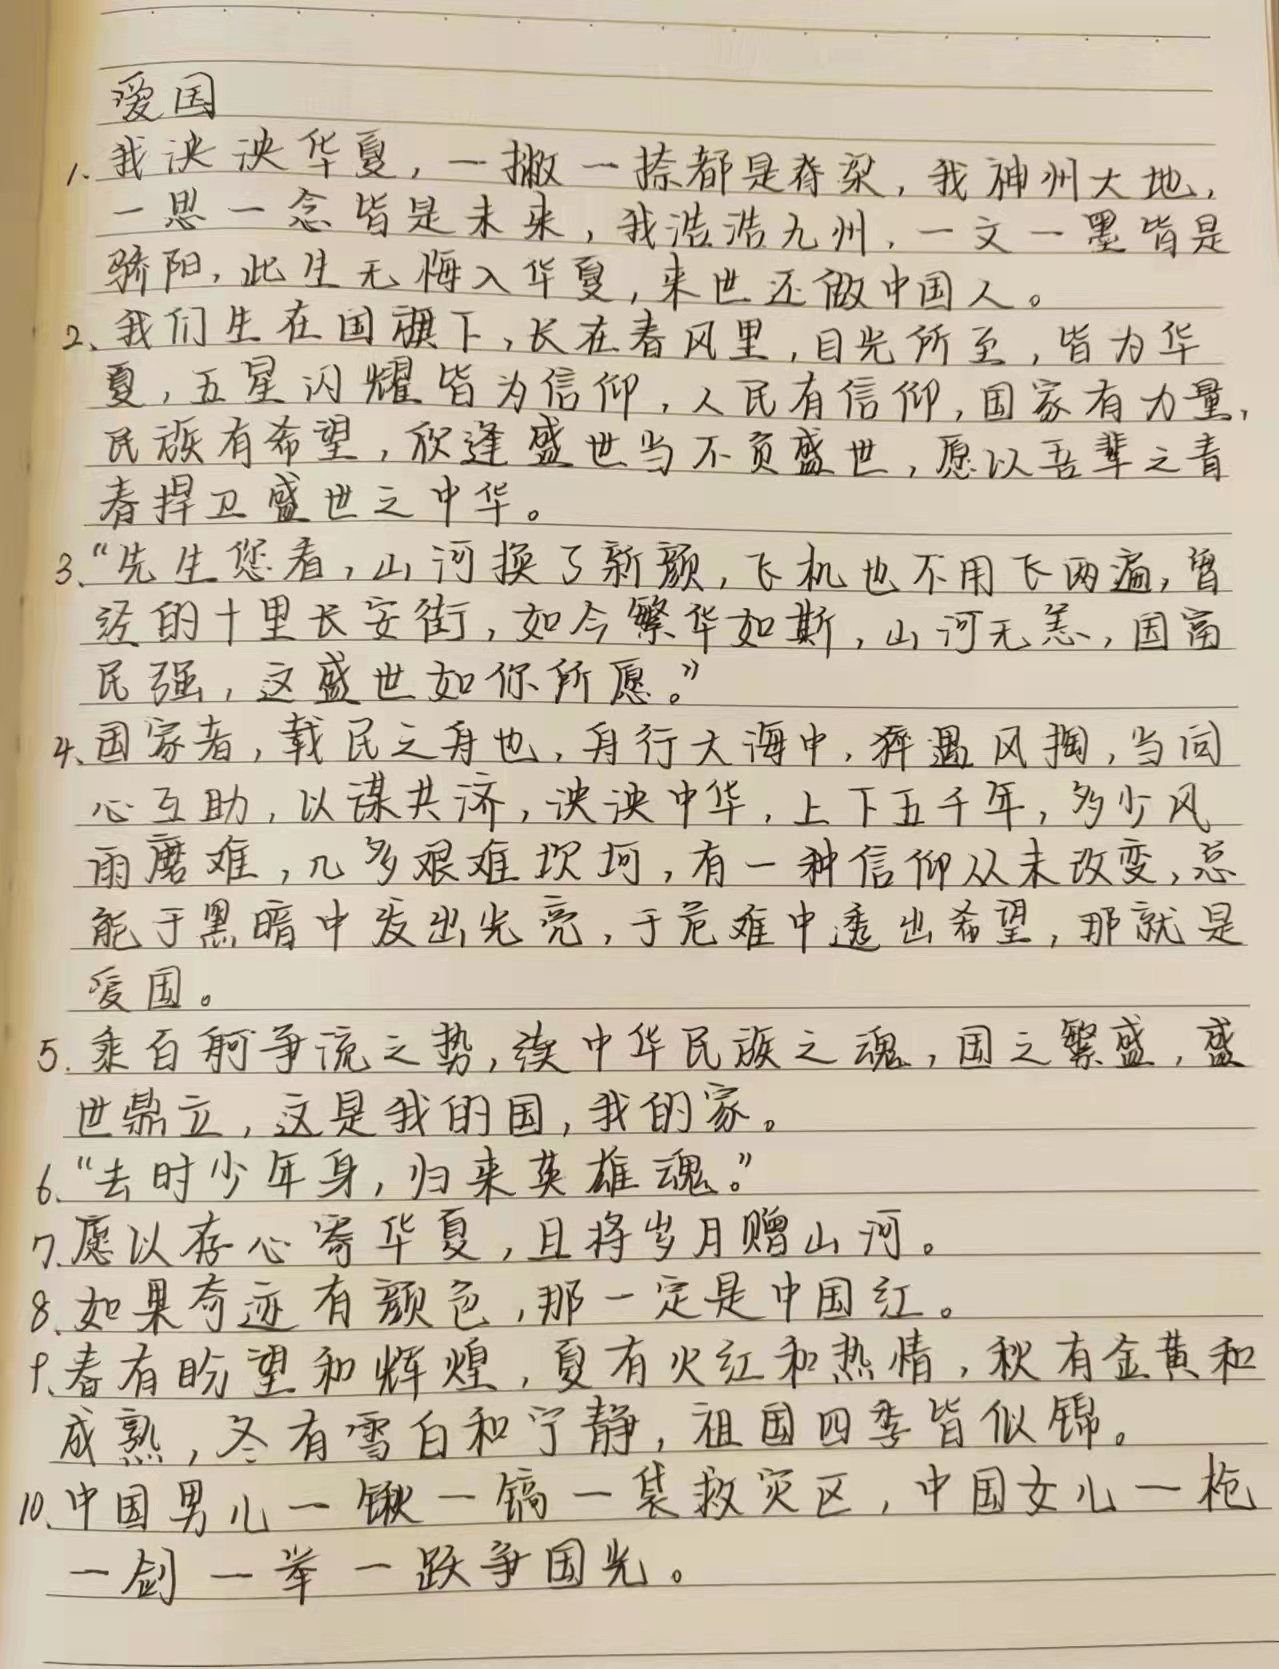 爱国
1、我泱泱华夏，一撇一捺都是脊梁，我神州大地，
一思一念皆是未来，我浩浩九州，一文一墨皆是
骄阳，此生无悔入华夏，来世还做中国人。
2、我们生在国旗下，长在春风里，目光所至，皆为华
夏，五星闪耀皆为信仰，人民有信仰，国家有力量，
民族有希望，欣逢盛世当不负盛世，愿以吾辈之青
春捍卫盛世之中华。
3、“先生您看，山河换了新颜，飞机也不用飞两遍，曾
经的十里长安街，如今繁华如斯，山河无恙，国富
民强，这盛世如你所愿。”
4、国家者，载民之舟也，舟行大海中，猝遇风搁，当同
心互助，以谋共济，泱泱中华，上下五千年，多少风
雨磨难，几多艰难坎坷，有一种信仰从未改变，总
能于黑暗中发出光亮，于危难中透出希望，那就是
爱国。
5. 乘百舸争流之势，续中华民族之魂，国之繁盛，盛
世鼎立，这是我的国，我的家。
6、“去时少年身，归来英雄魂。”
7、愿以存心寄华夏，且将岁月赠山河。
8、如果奇迹有颜色，那一定是中国红。
9、春有盼望和辉煌，夏有火红和热情，秋有金黄和
成熟，冬有雪白和宁静，祖国四季皆似锦。
10、中国男儿一锹一镐一袋救灾区，中国女儿一枪
一剑一举一跃争国光。